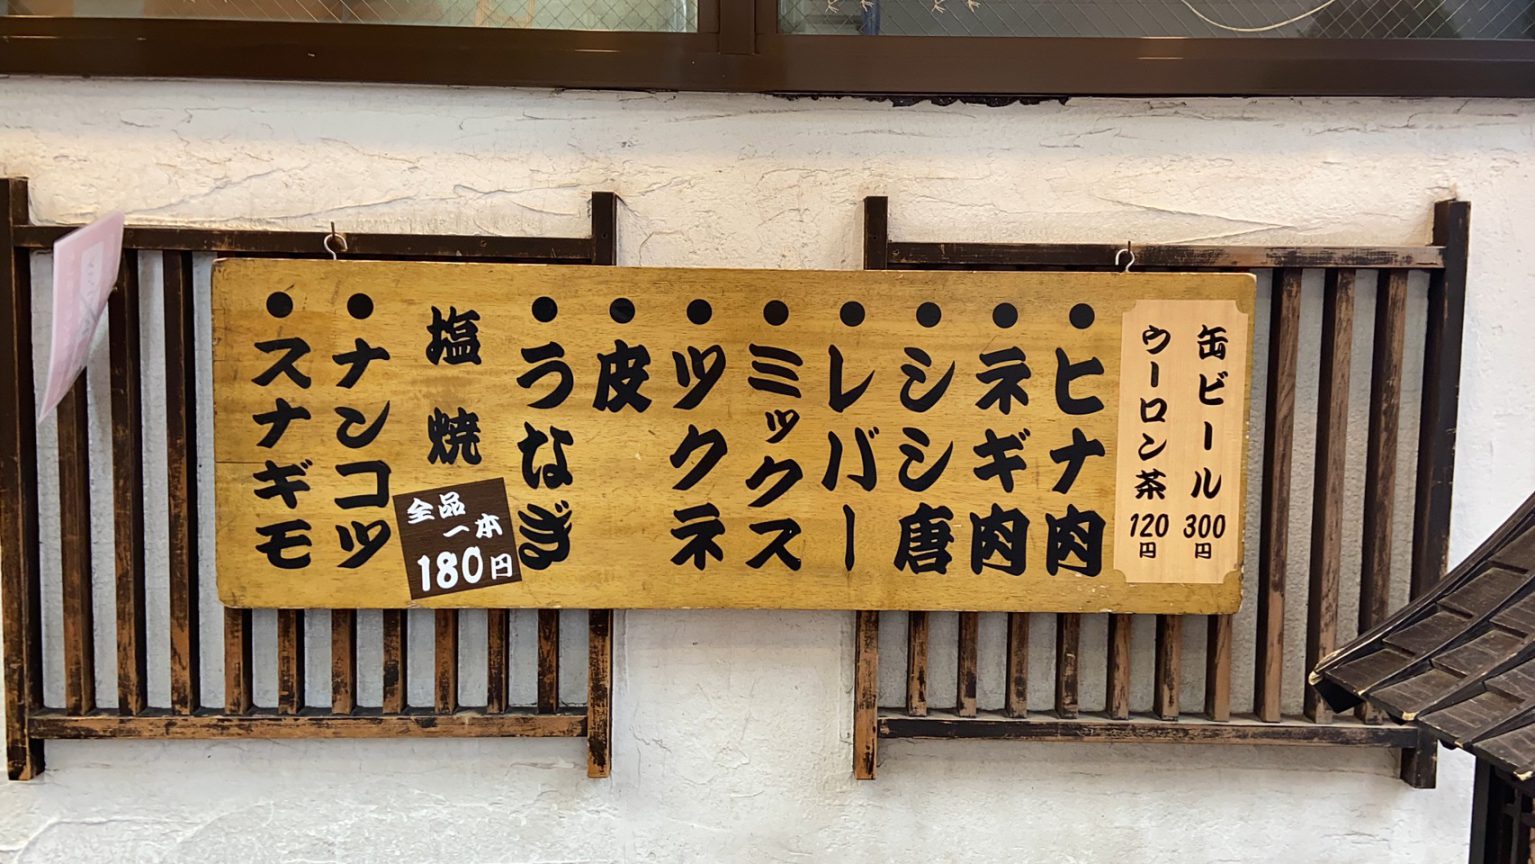 缶ビール300円
ウーロン茶120円
ヒナ肉
ネギ肉
シシ唐
レバー
ミックス
ツクネ
皮
うなぎ
塩焼
ナンコツ
スナギモ
全品
一本
180円